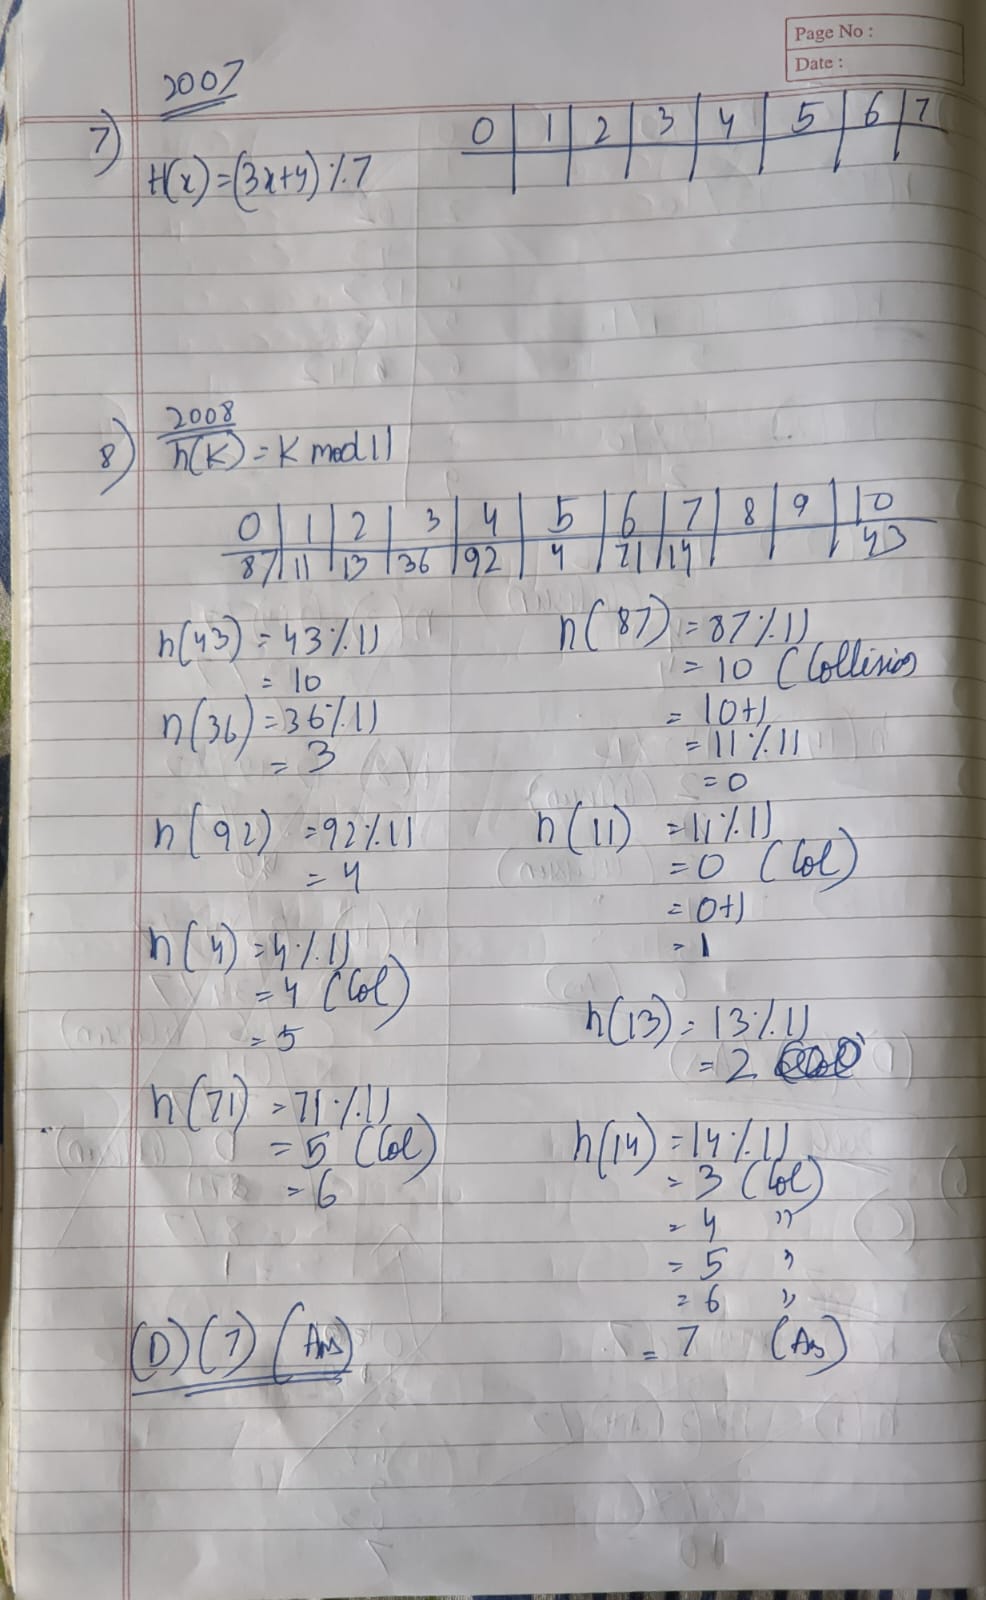 Page No :
Date :
2007
7)
0 1 2 3 4 5 6 7
H(x)=(3x+4)%7
2008
8) h(K) = K mod 11
0 1 2 3 4 5 6 7 8 9 10
87 11 13 36 92 4 71 14 43
h(43) = 43%11
= 10
h(36) = 36%11
= 3
h(92) = 92%11
= 4
h(4) = 4%11
= 4 (Col)
= 5
h(71) = 71%11
= 5 (Col)
= 6
h(87) = 87%11
= 10 (Collision
= 10+1
= 11%11
= 0
h(11) = 11%11
= 0 (Col)
= 0+1
= 1
h(13) = 13%11
= 2
h(14) = 14%11
= 3 (Col)
= 4 "
= 5 "
= 6 "
= 7 (Ans)
(D) (7) (Ans)